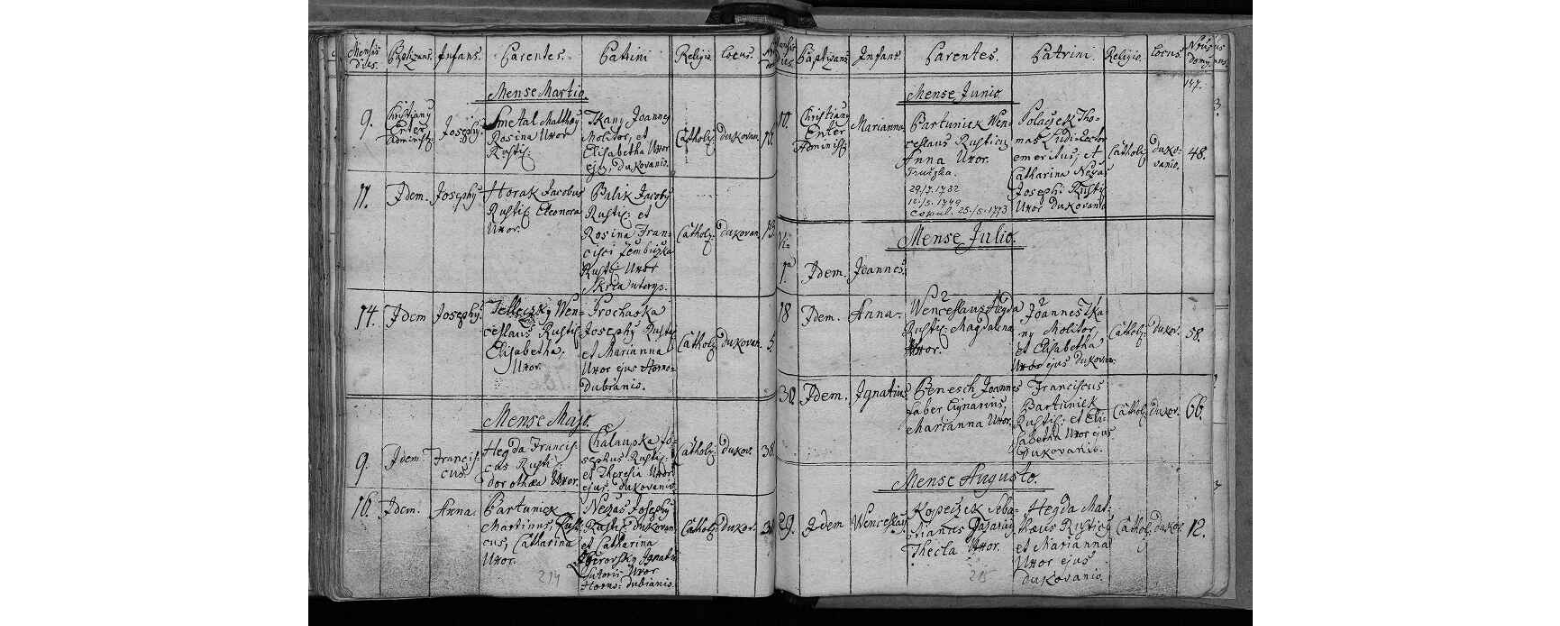 Mensis dies. Baptizans. Infans. Parentes. Patrini Religio Locus.
Mense Martio.
9. Christiany Enter Administ. Josephy
Smetal Matthey
Rosina Uxor
Rustic.
Tkany Joannes
Molitor, et
Elisabetha Uxor
ejs, Dukovanis.
Catholic. Dukovan.
11. Idem. Josephy
Horak Jacobus
Rustic. Eleonora
Uxor.
Balik Jacoby
Rustic. et
Rosina Fran-
cisci
Rustic. Uxor
Catholic. Dukovan. 13.
14. Idem Josephy.
Wen-
ceslaus Rustic.
Elisabetha.
Uxor.
Prochaska
Josephy Rustic.
et Marianna
Uxor ejus Horno-
Dubianis.
Catholic. Dukovan. 5.
Mense Majo.
9. Idem Francis-
cus.
Hegda Francis-
cus Rusti.
dorothaea Uxor.
Chalaupka Jo-
sephus Rustic.
et Theresia Uxor
ejus, dukovanis.
Catholic. dukov. 38.
16. Idem. Anna.
Bartuniek
Martinus, Rusti-
cus, Catharina
Uxor.
Josephy
Rustic. Dukovan.
et Catharina
Ignatii
Sutoris Uxor
Horno: dubianis.
Catholic. Dukov.
214
Mensis dies. Baptizans. Infans. Parentes. Patrini. Religio. Locus. Nrus domus
147.
Mense Junio
10. Christiany Enter Administ. Marianna
Bartuniek Wen-
ceslaus Rusticus
Anna Uxor.
Truszka.
29/7. 1782
12/5. 1749
Copul. 25/5. 1773
Polaczek Tho-
mas Ludi Rector
emeritus, et
Catharina
Josephi Rustic.
Uxor Dukovanis
Catholic. Duko-
vanis. 48.
Mense Julio.
1. Idem. Joannes.
18 Idem. Anna.
2
Wenceslaus Hegda
Rustic. Magdalena
Uxor.
2
Joannes Tka-
ny Molitor,
et Elisabetha
Uxor ejus Dukovan.
Catholic. dukov. 58.
30. Idem. Ignatius
Benesch Joannes
Faber Lignarius,
Marianna Uxor.
Franciscus
Bartuniek
Rustic. et Eli-
sabetha Uxor ejus
Dukovanis.
Catholic. dukov. 66.
Mense Augusto.
29. Idem Wenceslaus.
Kopeczek Seba-
stianus
Thecla Uxor.
Hegda Mat-
thaus Rusticus
et Marianna
Uxor ejus
dukovanis.
Catholic. dukov. 12.
215